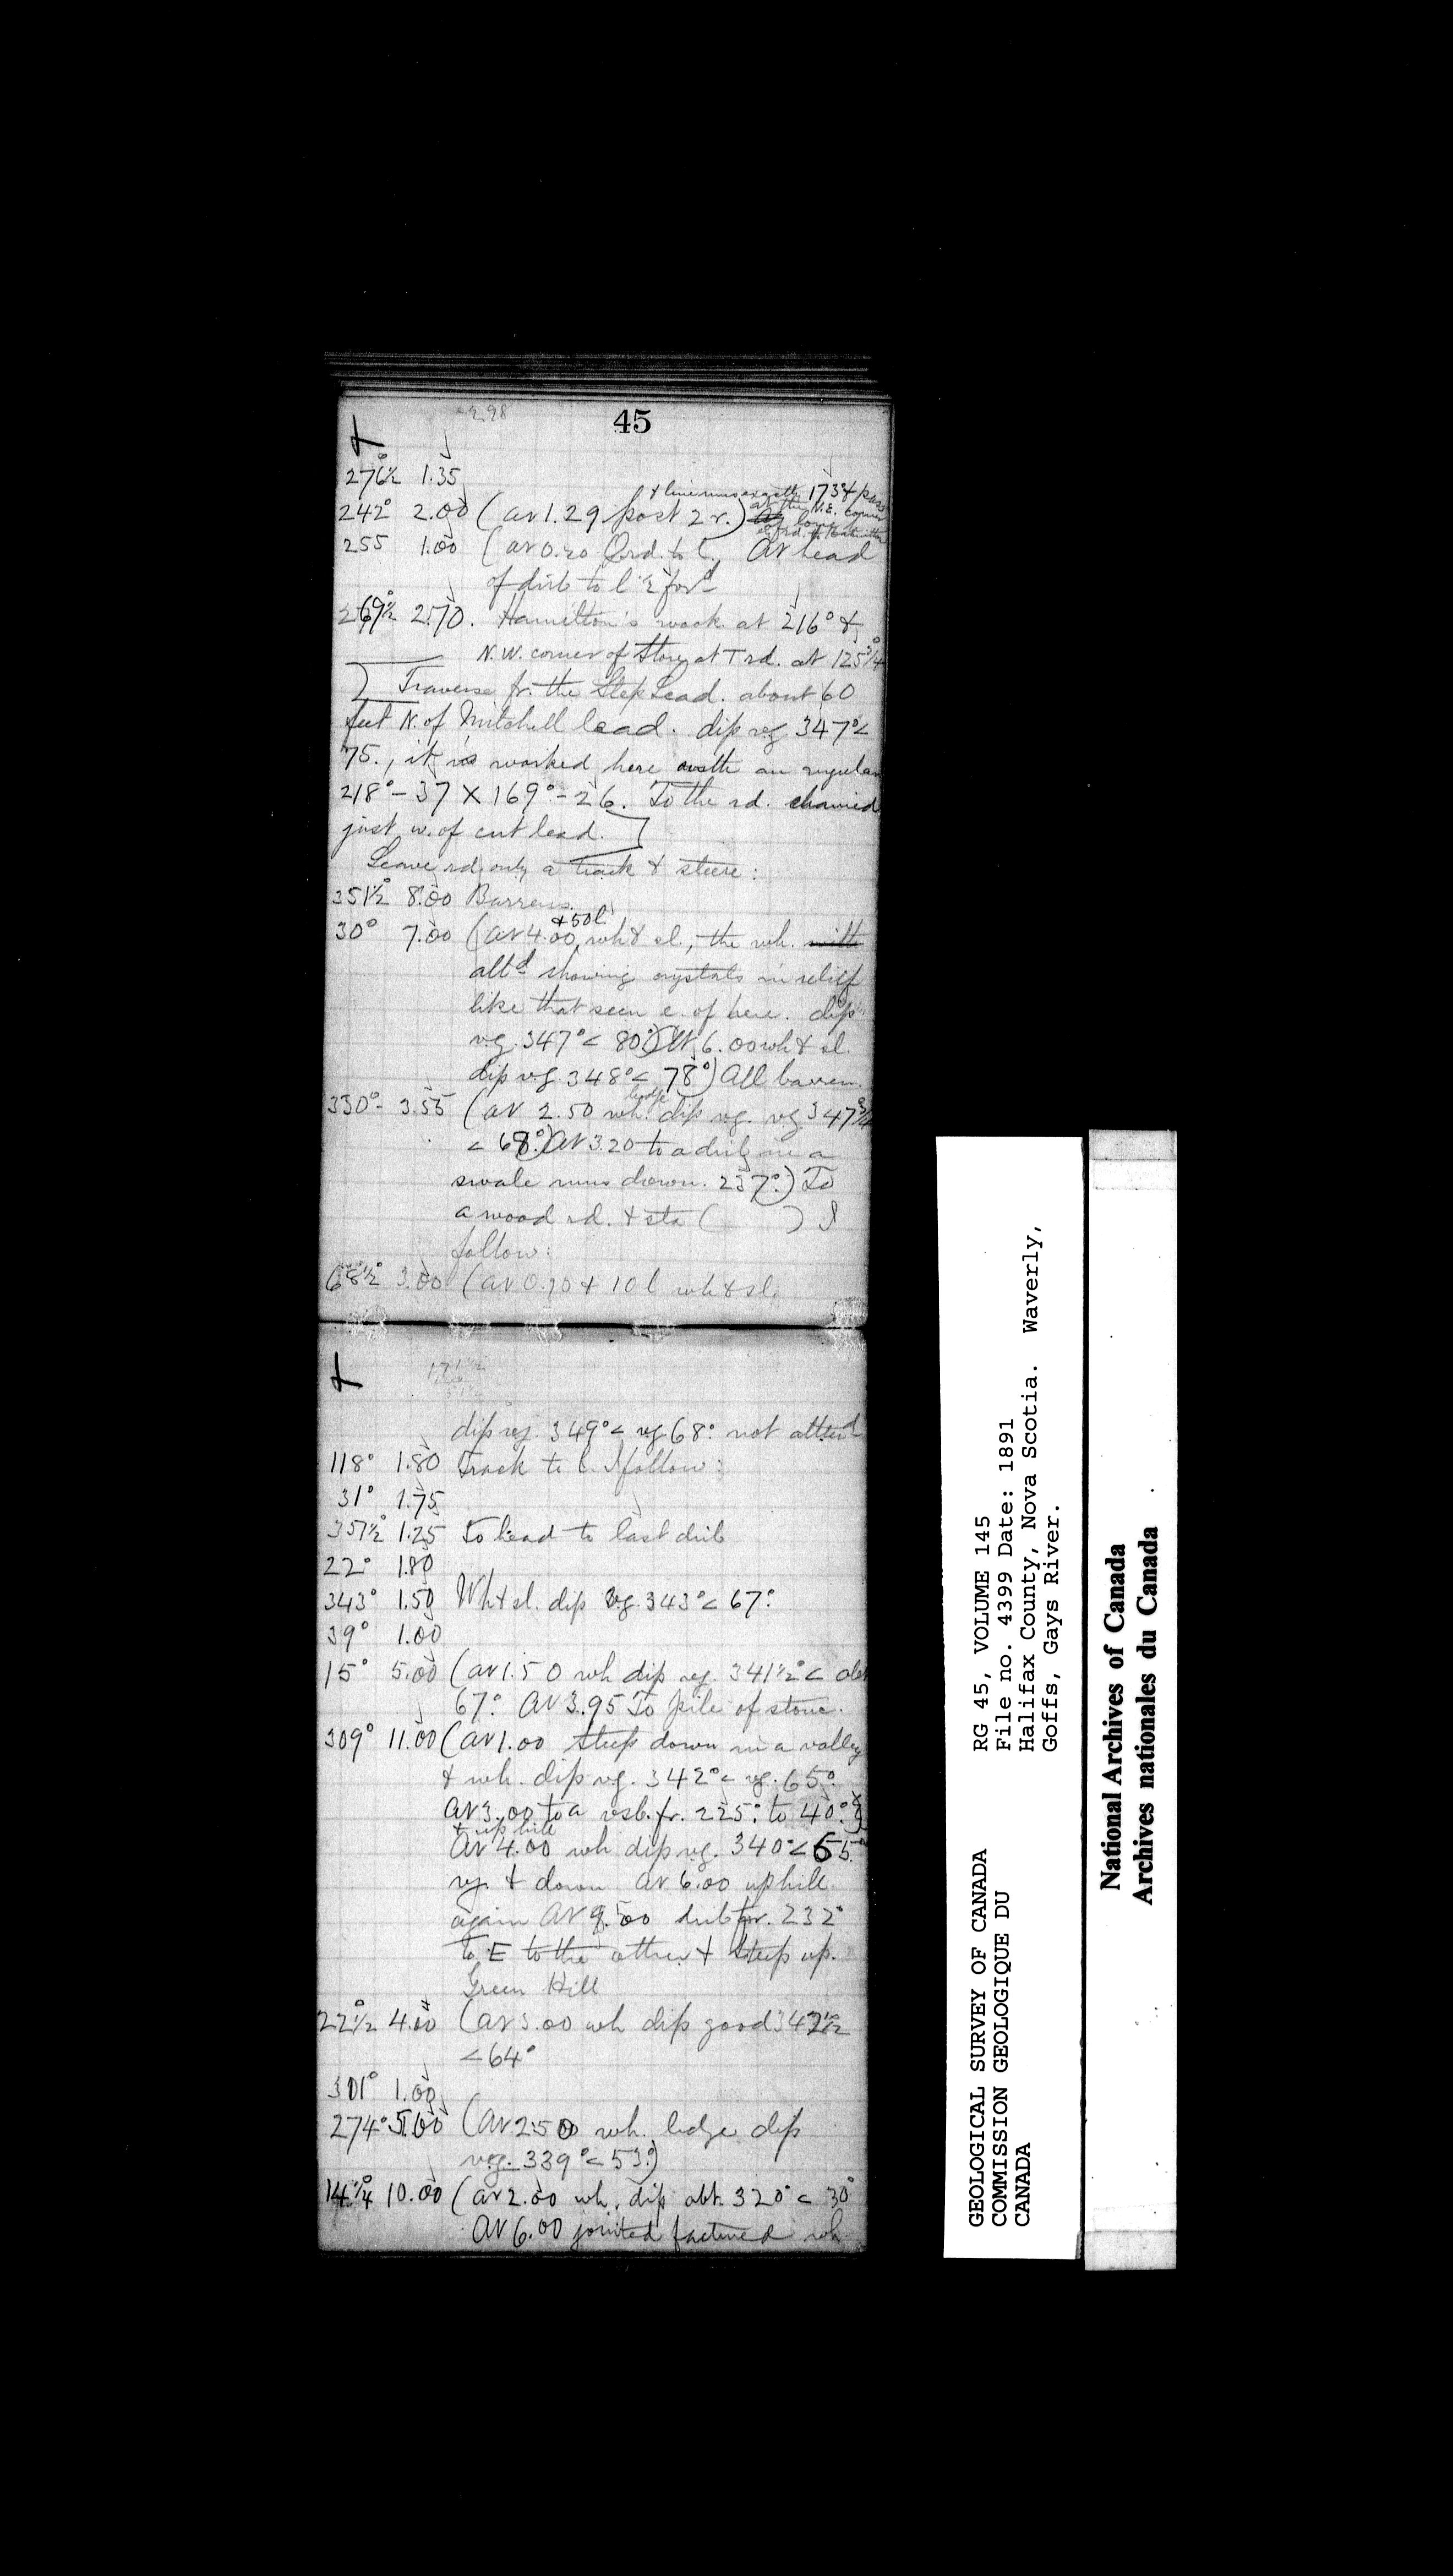 298
45
276½° 1.35
242° 2.00 (at 1.29 post 2 r.)
& line runs exactly 173° & pass
at the N.E. corner
255 1.00 (at 0.20 rd. to l. At head
of drib to l & for^d
269½° 2.70. Hamilton's at 216° &
N.W. corner of Store at T rd. at 125¾°
Traverse fr. the Step Lead. about 60
feet N. of Mitchell lead. dip vg 347°<
75., it is worked here with an
218°-37 X 169°-26. To the rd.
just w. of cut lead.
Leave rd only a track & steere:
351½° 8.00 Barrens.
30° 7.00 (at 4.00 & 50 l wh & sl., the wh. with
alt^d showing crystals in relief
like that seen e. of here. dip
v.g. 347° < 80°) At 6.00 wh & sl.
dip v.g 348° < 78°) All barren.
330° - 3.55 (at 2.50 wh. ledge dip vg. vg 347¾
< 68°) At 3.20 to a drib in a
swale runs down. 237°.) To
a wood rd. & sta ( ) I
follow:
68½° 3.00 (at 0.70 & 10 l wh & sl.
171½
dip vg. 349° < vg 68° not alter^d
118° 1.80 Track to l. I follow:
31° 1.75
357½° 1.25 To head to last drib
22° 1.80
343° 1.50 Wh & sl. dip vg. 343° < 67°
39° 1.00
15° 5.00 (at 1.50 wh dip vg. 341½° < abt
67° At 3.95 To pile of stone.
309° 11.00 (at 1.00 steep down in a valley
& wh. dip vg. 342° < vg. 65°
At 3.00 to a fr. 225° to 40°
& up hill
At 4.00 wh dip vg. 340 < 55°
vg. & down at 6.00 up hill
again At 9.50 drib fr. 232°
to E to the other & steep up.
Green Hill
22½° 4.00 (at 3.00 wh dip good 342½
< 64°
301° 1.00
274° 5.00 (At 2.50 wh. ledge dip
v.g. 339° < 53°)
14¼° 10.00 (at 2.00 wh. dip abt. 320° < 30°
At 6.00 jointed factured wh
GEOLOGICAL SURVEY OF CANADA
COMMISSION GEOLOGIQUE DU
CANADA
RG 45, VOLUME 145
File no. 4399 Date: 1891
Halifax County, Nova Scotia. Waverly,
Goffs, Gays River.
National Archives of Canada
Archives nationales du Canada